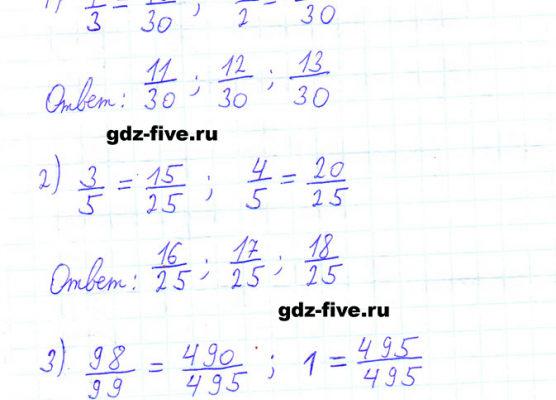 3 = 30 ; 2 30
Ответ: 11/30 ; 12/30 ; 13/30
gdz-five.ru
2) 3/5 = 15/25 ; 4/5 = 20/25
Ответ: 16/25 ; 17/25 ; 18/25
gdz-five.ru
3) 98/99 = 490/495 ; 1 = 495/495